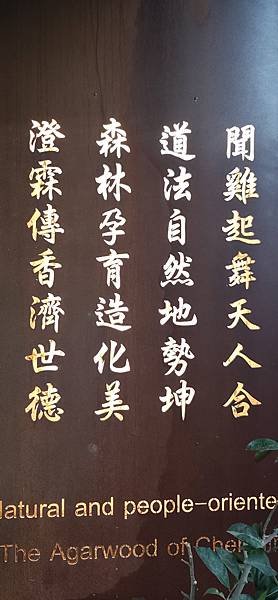 聞雞起舞天人合
道法自然地勢坤
森林孕育造化美
澄霖傳香濟世德
Natural and people-oriente
The Agarwood of Che